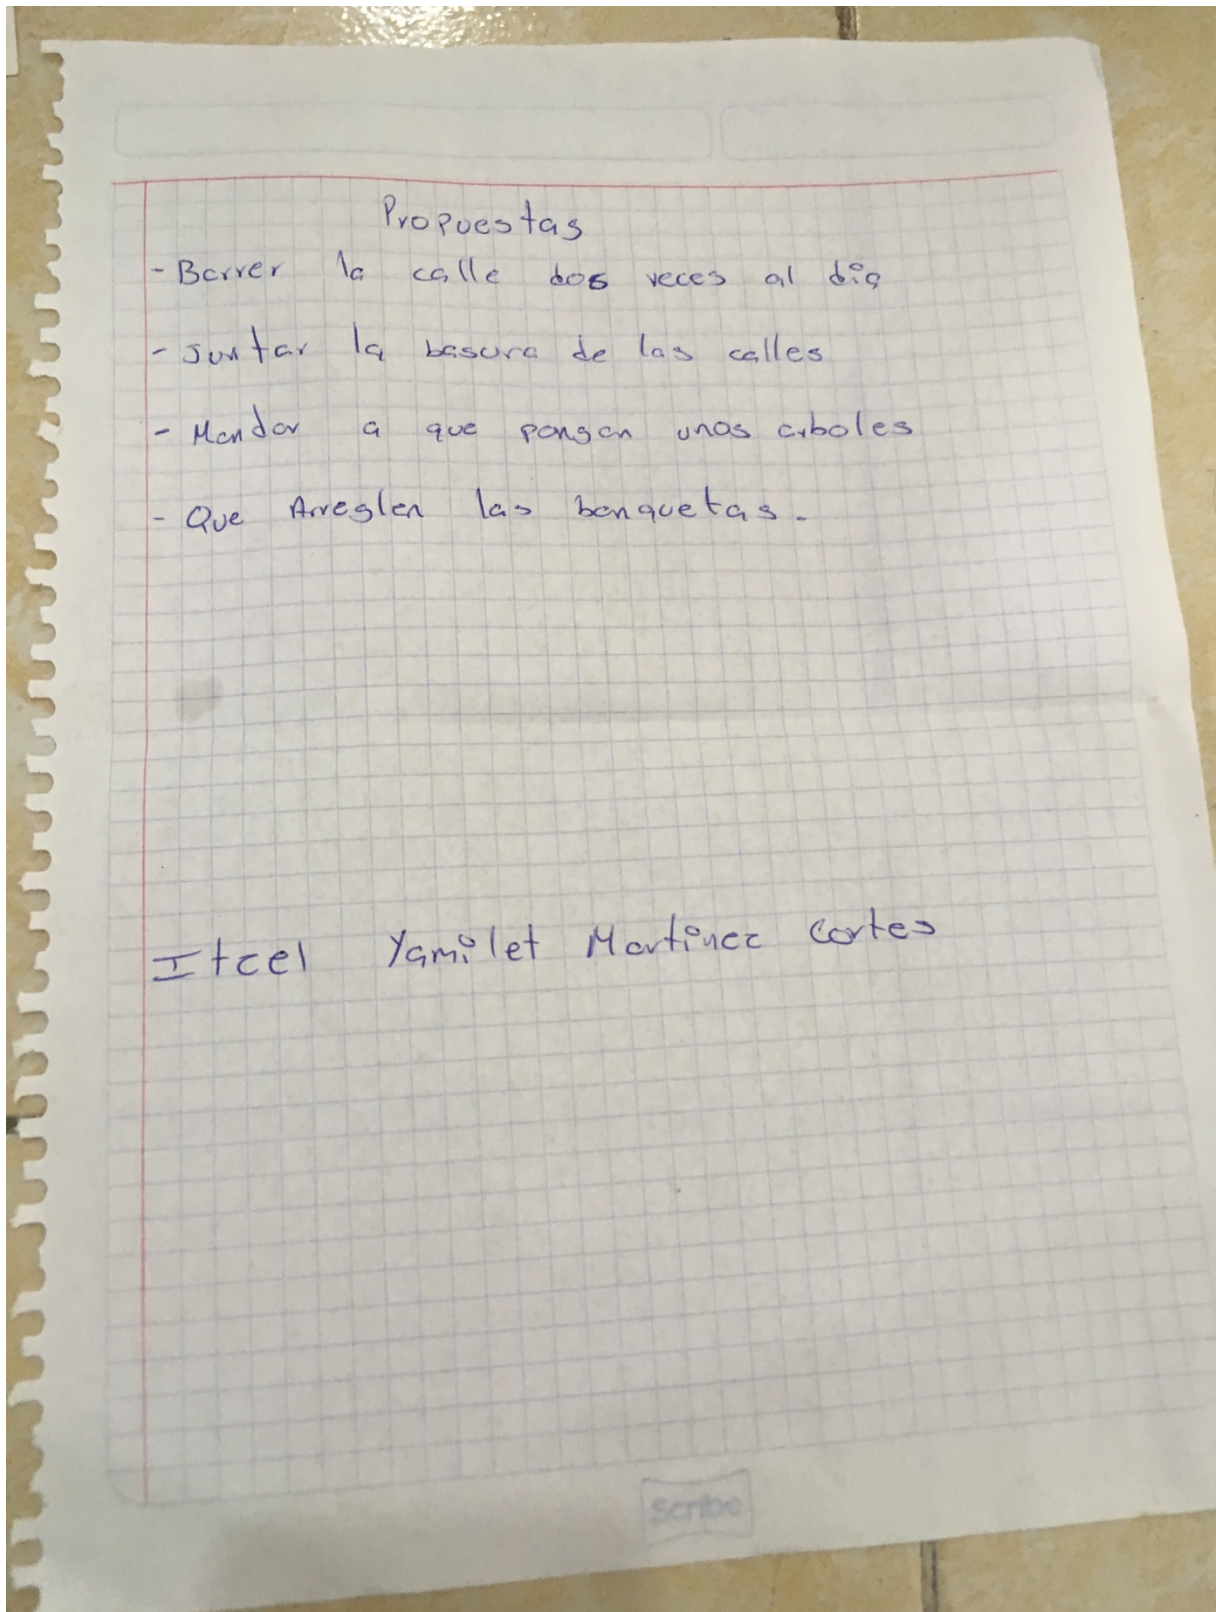 Propuestas
- Barrer la calle dos veces al dia
- Juntar la basura de las calles
- Mandar a que pongan unos arboles
- Que Arreglen las banquetas.
Itzel Yamilet Martinez Cortes
Scribe